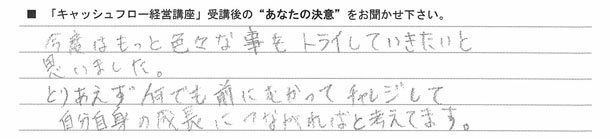 ■ 「キャッシュフロー経営講座」受講後の“あなたの決意”をお聞かせ下さい。
今度はもっと色々な事をトライしていきたいと
思いました。
とりあえず何でも前にむかってチャレジして
自分自身の成長につながればと考えてます。